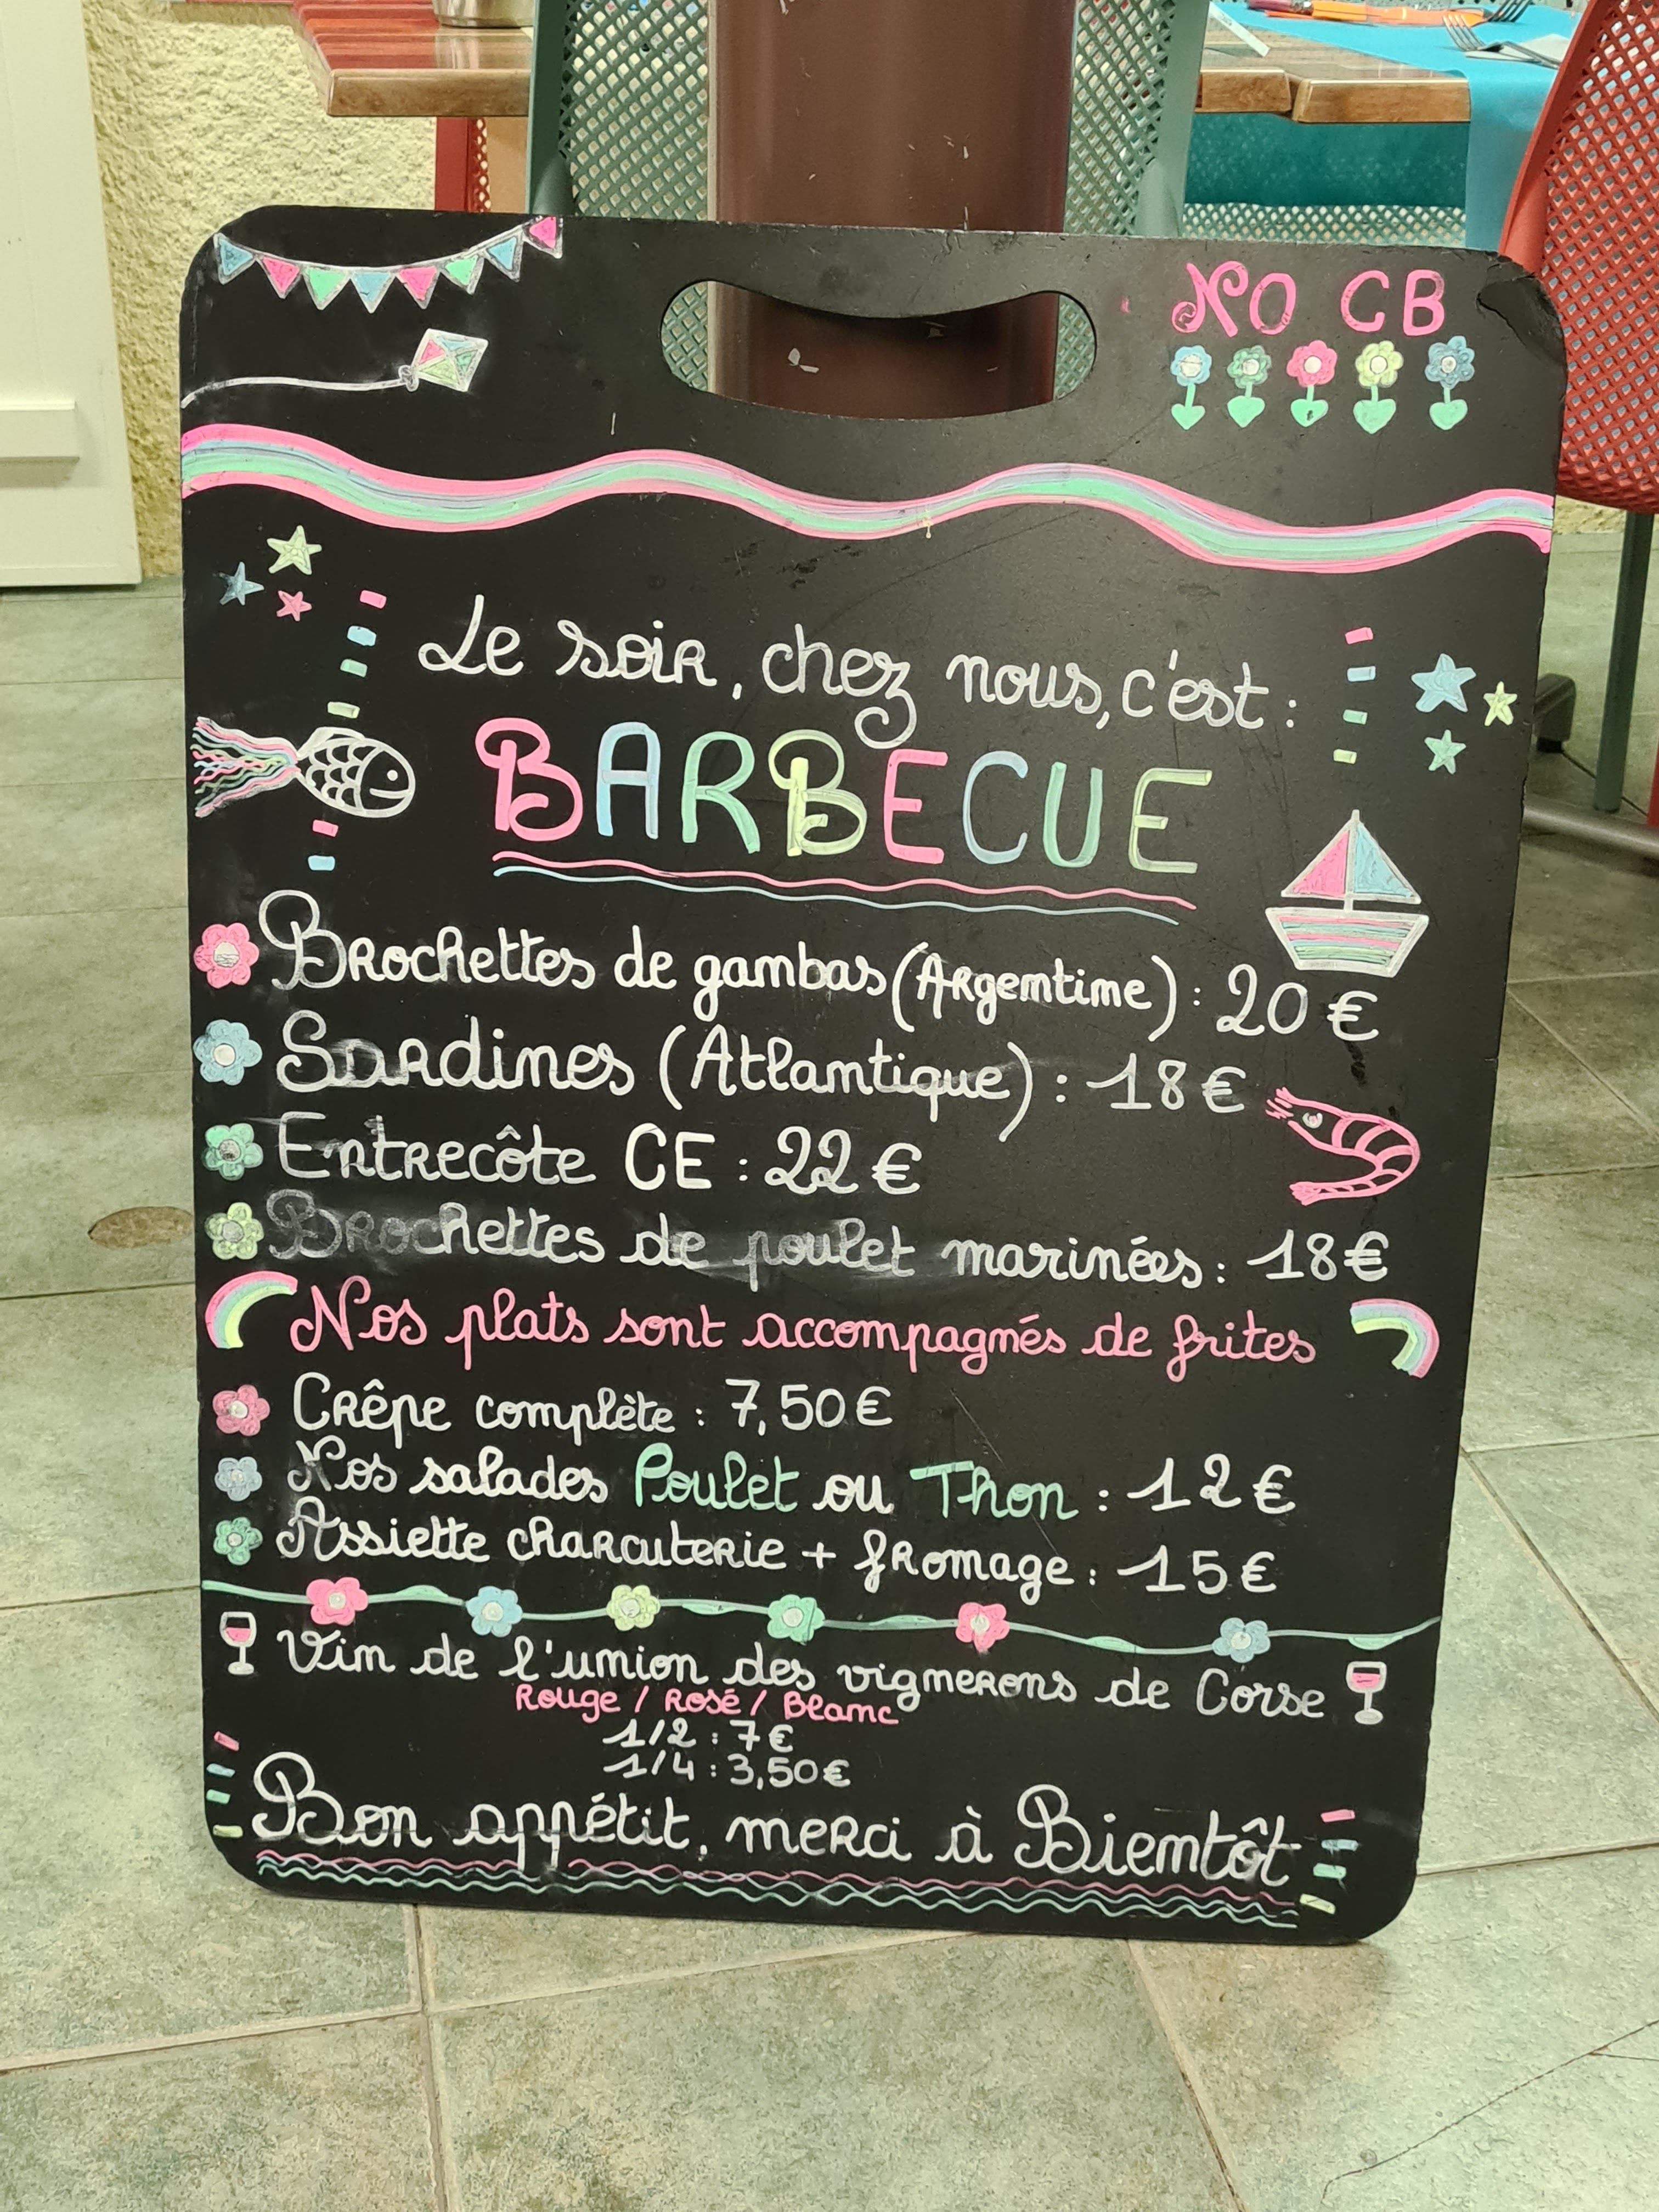 NO CB
Le soir, chez nous, c'est :
BARBECUE
Brochettes de gambas (Argentine) : 20 €
Sardines (Atlantique) : 18 €
Entrecôte CE : 22 €
Brochettes de poulet marinées : 18 €
Nos plats sont accompagnés de frites
Crêpe complète : 7,50 €
Nos salades Poulet ou Thon : 12 €
Assiette charcuterie + fromage : 15 €
Vin de l'union des vignerons de Corse
Rouge / Rosé / Blanc
1/2 : 7 €
1/4 : 3,50 €
Bon appétit, merci à Bientôt